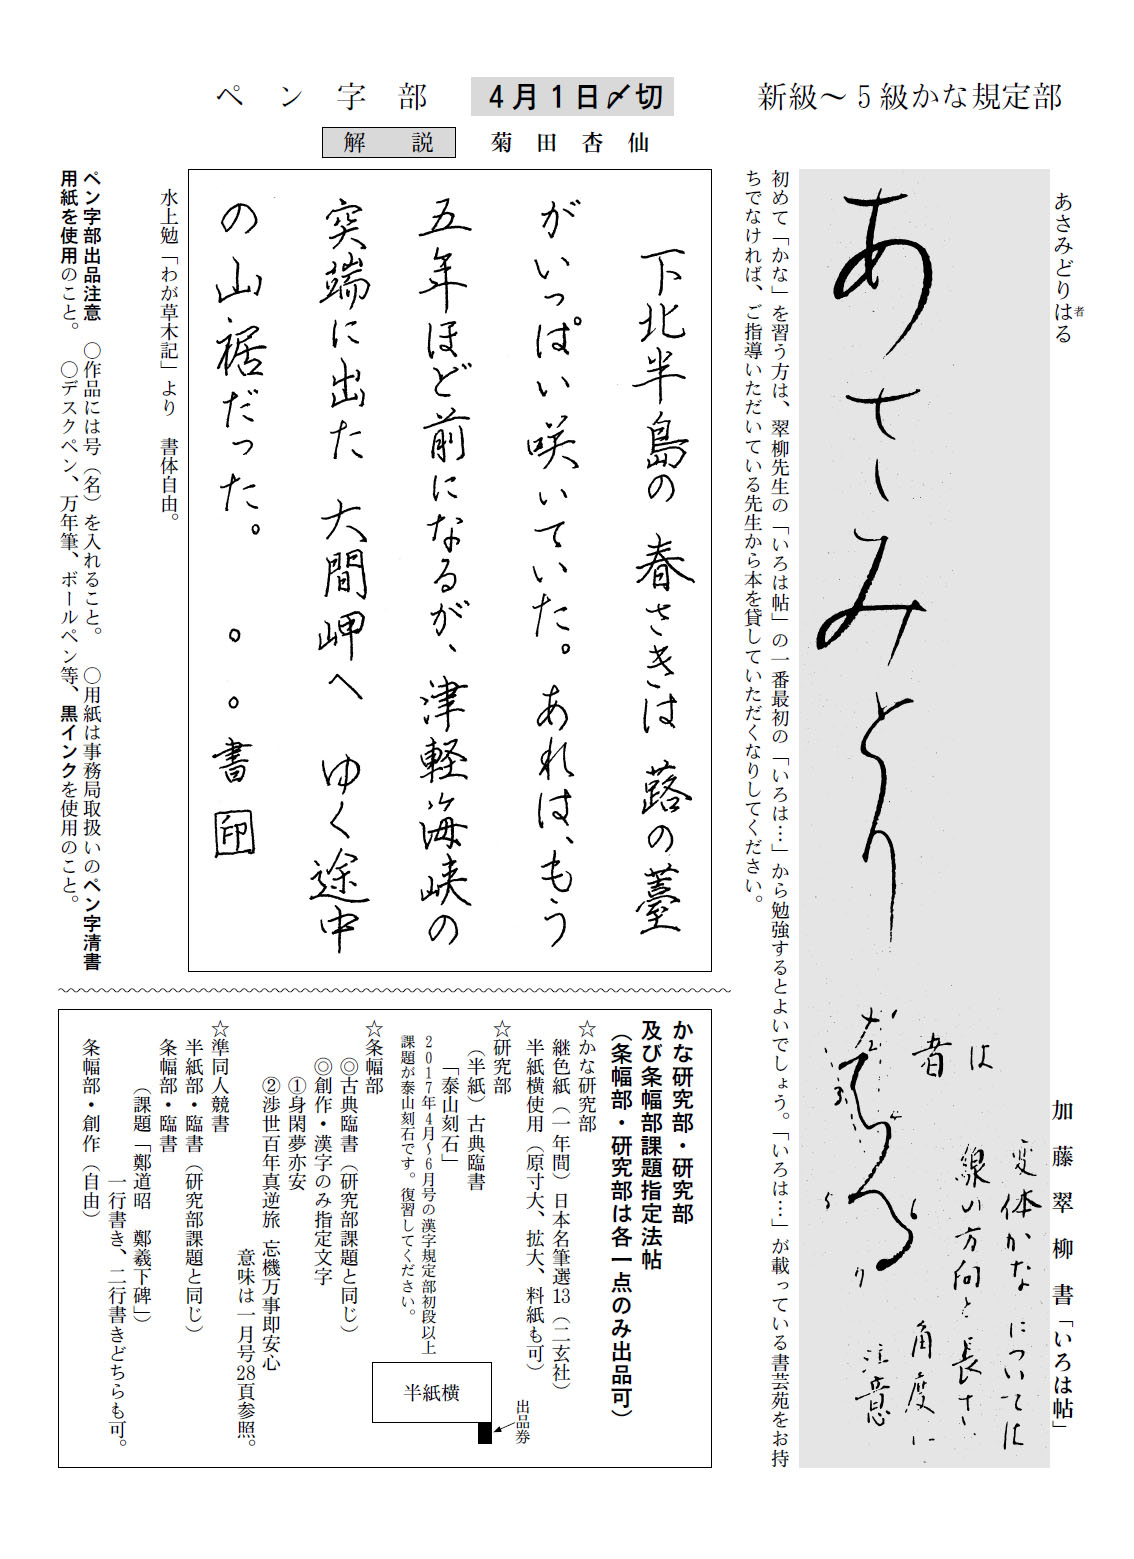 新級〜5級かな規定部
あさみどりはる
者
加藤翠柳書「いろは帖」
あさみどりはる
は
者
変体かなについては
線の方向と長さ
角度に
注意
5
6
7
初めて「かな」を習う方は、翠柳先生の「いろは帖」の一番最初の「いろは…」から勉強するとよいでしょう。「いろは…」が載っている書芸苑をお持
ちでなければ、ご指導いただいている先生から本を貸していただくなりしてください。
ペン字部
4月1日〆切
解説
菊田杏仙
下北半島の春さきは蕗の薹
がいっぱい咲いていた。あれは、もう
五年ほど前になるが、津軽海峡の
突端に出た大間岬へゆく途中
の山裾だった。
。。書印
水上勉「わが草木記」より 書体自由。
ペン字部出品注意 ○作品には号(名)を入れること。 ○用紙は事務局取扱いのペン字清書
用紙を使用のこと。 ○デスクペン、万年筆、ボールペン等、黒インクを使用のこと。
かな研究部・研究部
及び条幅部課題指定法帖
(条幅部・研究部は各一点のみ出品可)
☆かな研究部
継色紙(一年間)日本名筆選13(二玄社)
半紙横使用(原寸大、拡大、料紙も可)
☆研究部
(半紙)古典臨書
「泰山刻石」
2017年4月〜6月号の漢字規定部初段以上
課題が泰山刻石です。復習してください。
半紙横
出品券
☆条幅部
◎古典臨書(研究部課題と同じ)
◎創作・漢字のみ指定文字
①身閑夢亦安
②渉世百年真逆旅 忘機万事即安心
意味は一月号28頁参照。
☆準同人競書
半紙部・臨書(研究部課題と同じ)
条幅部・臨書
(課題「鄭道昭 鄭羲下碑」)
一行書き、二行書きどちらも可。
条幅部・創作(自由)